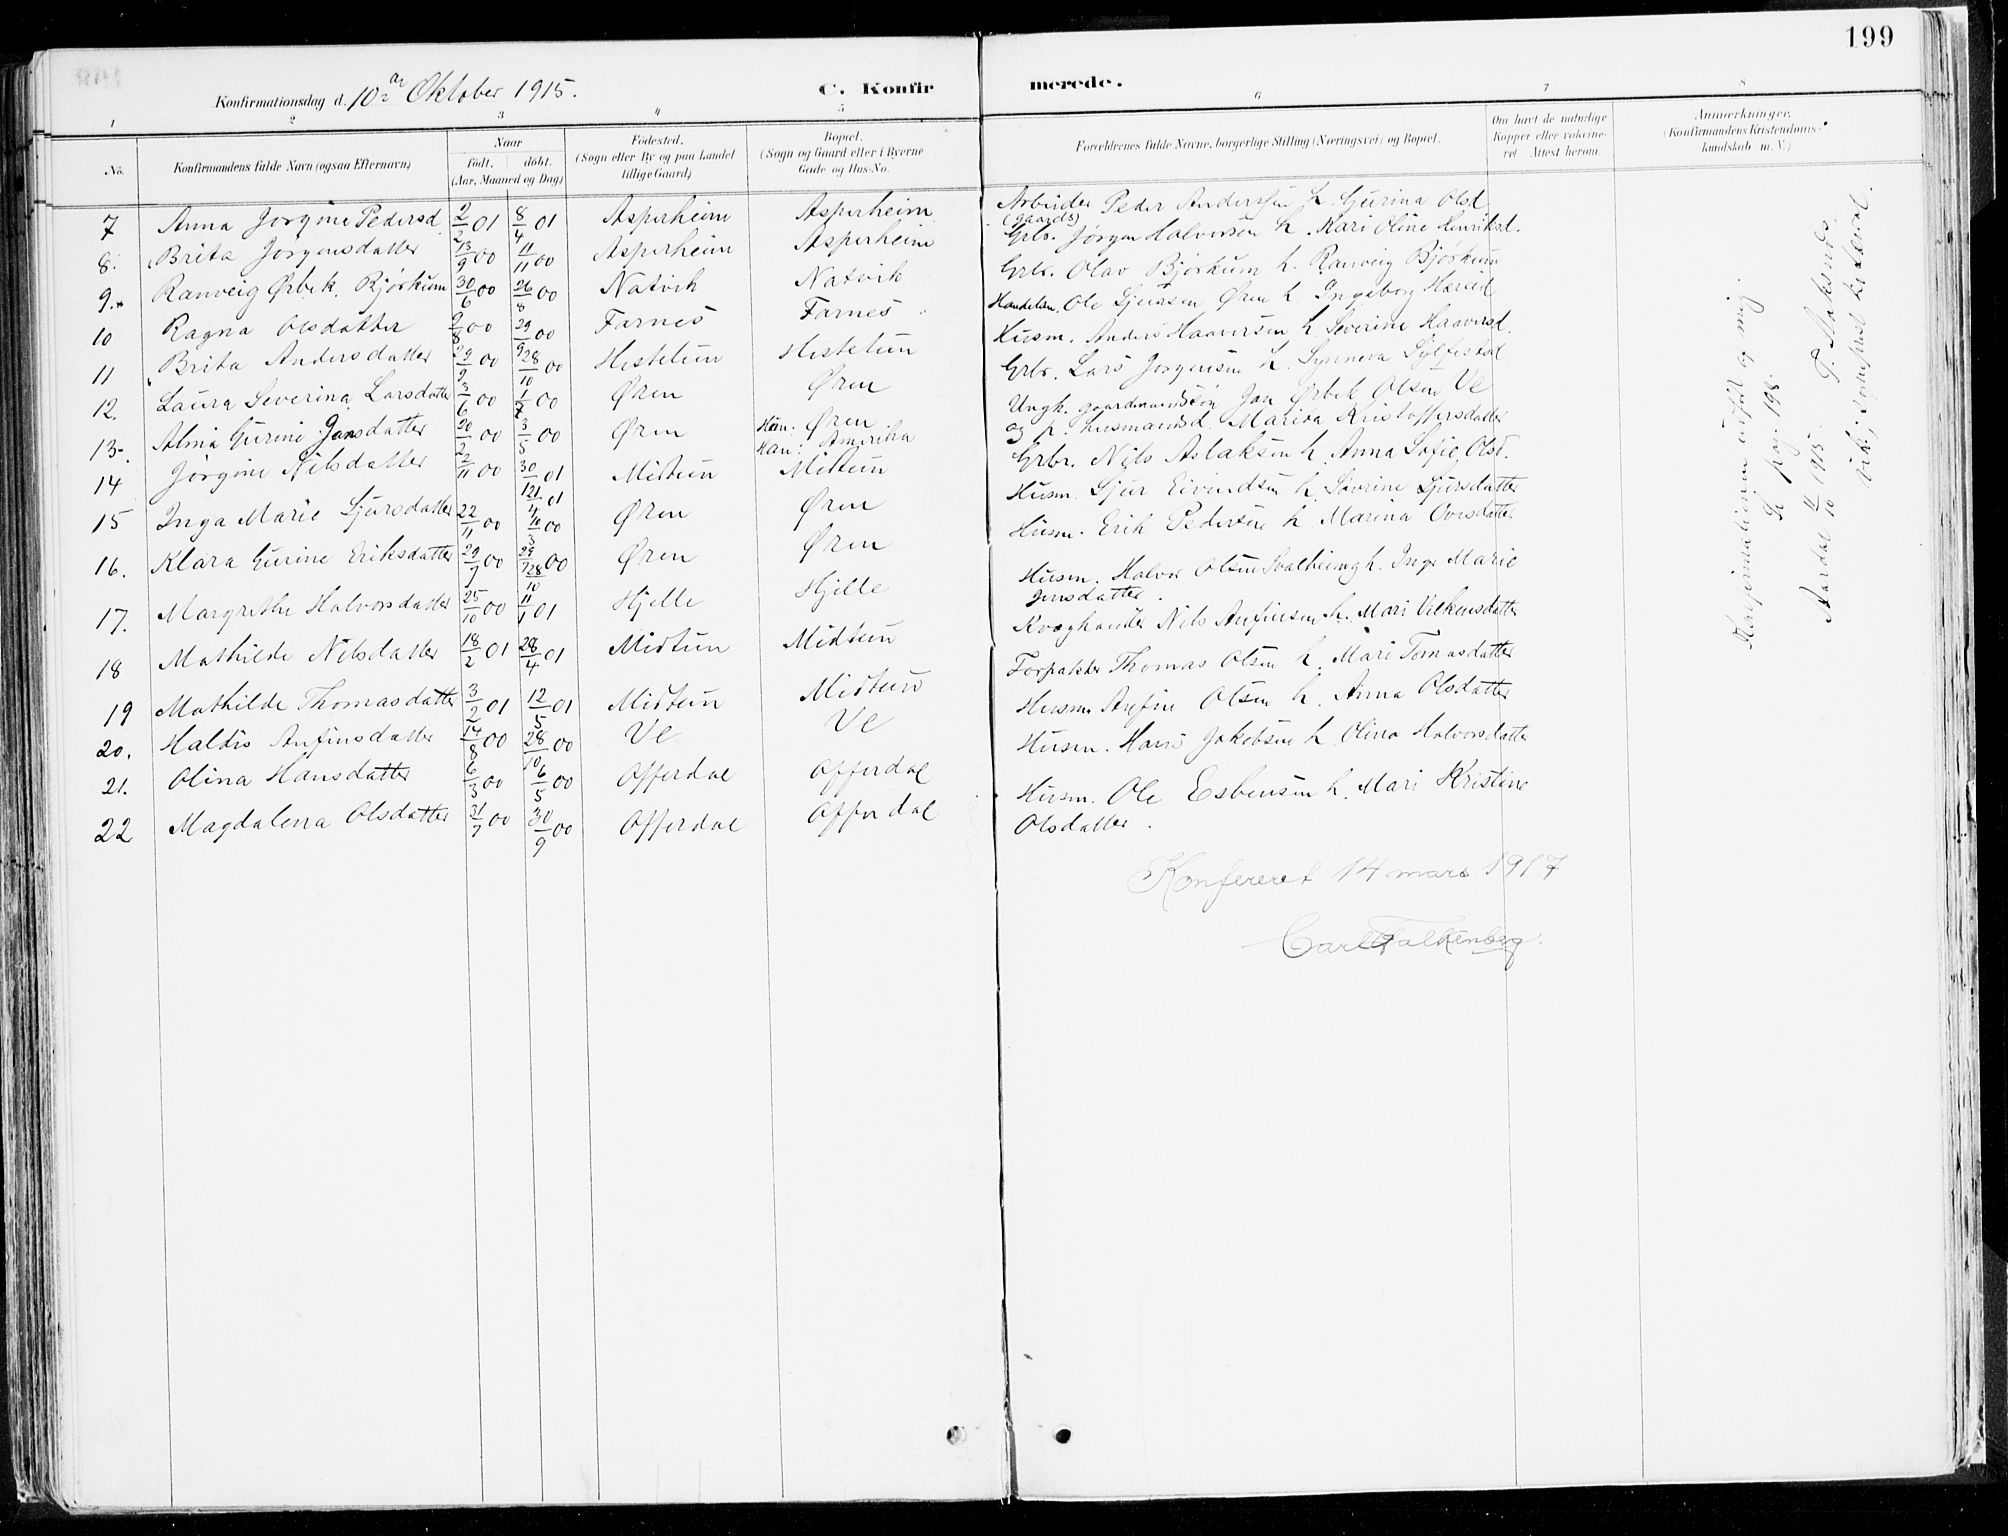 199
Konfirmationsdag d. 10de Oktober 1915.
C. Konfirmerede.
1 2 3 4 5 6 7 8
No. Konfirmandens fulde Navn (ogsaa Efternavn) Naar født. døbt. (Aar, Maaned og Dag) Fødested. (Sogn eller By og paa Landet tillige Gaard) Bopæl. (Sogn og Gaard eller i Byerne Gade og Hus-No. Forældrenes fulde Navne, borgerlige Stilling (Næringsvei) og Bopæl. Om havt de naturlige Kopper eller vaccineret. Attest herom. Anmærkninger. (Konfirmandens Kristendomskundskab m. V.)
7 Anna Jørgine Pedersd. 2/2 01 8/4 01 Asperheim Asperheim Arbeider Peder Anderssen h. Gjurina Olsd
8. Brita Jørgensdatter 13/9 00 11/11 00 Asperheim Asperheim (gaards) Grbr. Jørgen Halvorsen h. Kari Oline Henriksd.
9. Ranveig Ørbek Bjørkum 30/6 00 26/8 00 Natvik Natvik Grbr. Olav Bjørkum h. Ranveig Bjørkum
10 Ragna Olsdatter 9/8 00 29/9 00 Farnes Farnes Handelsm. Ole Sjursen Øren h. Ingeborg Hereid
11 Brita Andersdatter 29/9 00 28/10 00 Hestetun Hestetun Husm. Anders Haaversen h. Severine Haaversd.
12. Laura Severina Larsdatter 3/6 00 1/7 00 Øren Øren Grbr. Lars Jørgensen h. Synneva Sylfestsd
13. Alma Gurine Jansdatter 20/2 00 3/5 00 Øren Hun: Øren Han: Amerika Ungk. gaardmandssøn Jan Ørbek Olsen Ve
og p. husmandsd. Marita Kristoffersdatter
14 Jørgine Nilsdatter 22/11 00 30/12 01 Midtun Midtun Grbr. Nils Aslaksen h. Anna Sofie Olsd.
15 Inga Marie Sjursdatter 22/11 00 21/4 01 Øren Øren Husm. Sjur Eivindsen h. Søvrine Sjursdatter
16. Klara Gurine Eriksdatter 29/7 00 29/7 00 Øren Øren Husm. Erik Pedersen h. Marina Ovesdatter
17. Margrethe Halvorsdatter 25/10 00 11/1 01 Hjelle Hjelle Husm. Halvor Olsen Svalheim h. Inge Marie
Jensdatter.
18 Mathilde Nilsdatter 18/2 01 28/4 01 Midtun Midtun Kvæghandler Nils Anfinsen h. Mari Vilhemsdatter
19 Mathilde Thomasdatter 3/2 01 12/5 01 Midtun Midtun Forpakter Thomas Olsen h. Mari Tomasdatter
20. Haldis Anfinsdatter 14/8 00 28/10 00 Ve Ve Husm. Anfin Olsen h. Anna Olsdatter
21. Olina Hansdatter 6/3 00 6/5 00 Offerdal Offerdal Husm. Hans Jakobsen h. Olina Halvorsdatter
22 Magdalena Olsdatter 31/7 00 30/9 00 Offerdal Offerdal Husm. Ole Esbensen h. Mari Kristine
Olsdatter.
Konfereret 14 mars 1917
Carl Falkenberg.
Konfirmationen udført og mig.
Se pag. 198.
Aardal 11/10 1915.